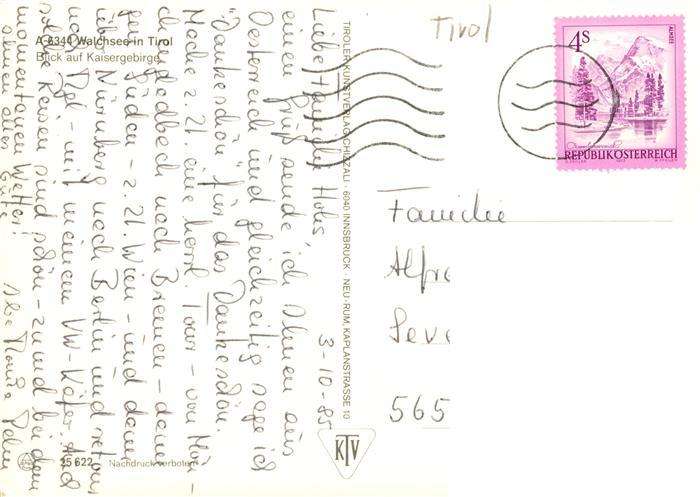 Tirol
4S
ALMSEE
REPUBLIK ÖSTERREICH
A-6344 Walchsee in Tirol
Blick auf Kaisergebirge
3-10-85
Liebe Familie Hohs
einen Gruß sende ich Ihnen aus
Oesterreich und gleichzeitig sage ich
"Dankeschön" für das Dankeschön.
Mache z. Zt. eine herrl. Tour - von Mön-
chengladbach nach Bremen - dann
gen Süden - z. Zt. Wien - und dann
über Nürnberg nach Berlin und retour
nach Mgl. - mit meinem VW-Käfer. Auch
solche Reisen sind schön - zumal bei dem
momentanen Wetter!
Ihnen alles Gute
Ihre
TIROLER KUNSTVERLAG CHIZZALI · 6040 INNSBRUCK · NEU-RUM, KAPLANSTRASSE 10
Familie
Alfre
Seve
565
KTV
25 622 Nachdruck verboten